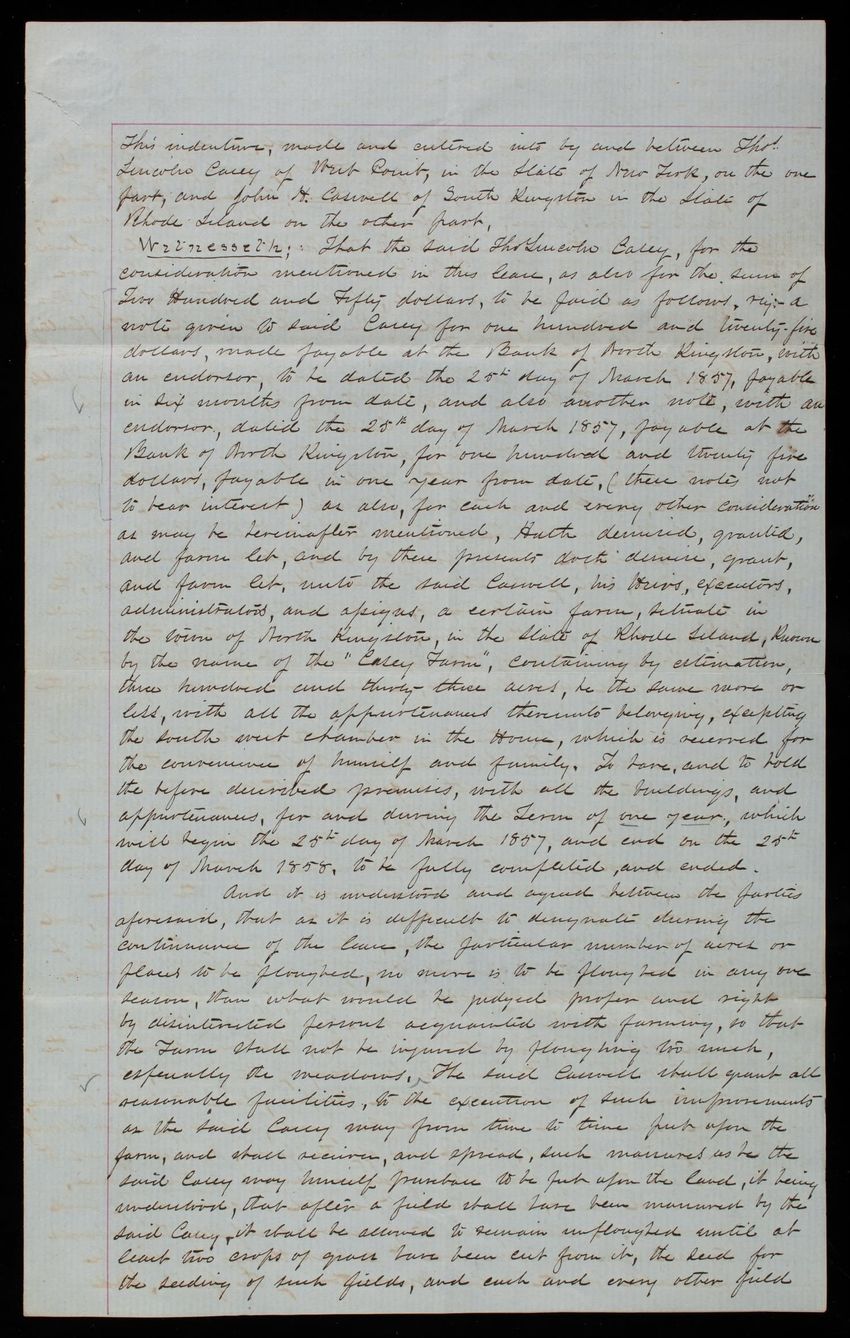 This indenture, made and entered into by and between Thos.
Lincoln Casey of West Point, in the State of New York, on the one
part, and John H. Caswell of South Kingston in the State of
Rhode Island on the other part,
Witnesseth;: That the said Tho Lincoln Casey, for the
consideration mentioned in this lease, as also for the sum of
Two Hundred and Fifty dollars, to be paid as follows, viz;- a
note given to said Casey for one hundred and twenty-five
dollars, made payable at the Bank of North Kingston, with
an endorser, to be dated the 25th day of March 1857, payable
in six months from date, and also another note, with an
endorser, dated the 25th day of March 1857, payable at the
Bank of North Kingston, for one hundred and twenty five
dollars, payable in one year from date, (these notes not
to bear interest) as also, for each and every other consideration
as may be hereinafter mentioned, Hath demised, granted,
and farm let, and by these presents doth demise, grant,
and farm let, unto the said Caswell, his Heirs, executors,
administrators, and assigns, a certain farm, situate in
the town of North Kingston, in the State of Rhode Island, Known
by the name of the "Casey Farm", containing by estimation,
three hundred and thirty-three acres, be the same more or
less, with all the appurtenances thereunto belonging, excepting
the south west chamber in the House, which is reserved for
the convenience of himself and family. To have, and to hold
the before described premises, with all the buildings, and
appurtenances, for and during the Term of one year, which
will begin the 25th day of March 1857, and end on the 25th
day of March 1858, to be fully completed, and ended.
And it is understood and agreed between the parties
aforesaid, that as it is difficult to designate during the
continuance of the lease, the particular number of acres or
places to be ploughed, no more is to be ploughed in any one
season, than what would be judged proper and right
by disinterested persons acquainted with farming, so that
the Farm shall not be injured by ploughing too much,
especially the meadows. The said Caswell shall grant all
reasonable facilities, to the execution of such improvements
as the said Casey may from time to time put upon the
farm, and shall receive, and spread, such manures as he the
said Casey may himself purchase to be put upon the land, it being
understood, that after a field shall have been manured by the
said Casey, it shall be allowed to remain unploughed until at
least two crops of grass have been cut from it, the seed for
the seeding of such fields, and each and every other field